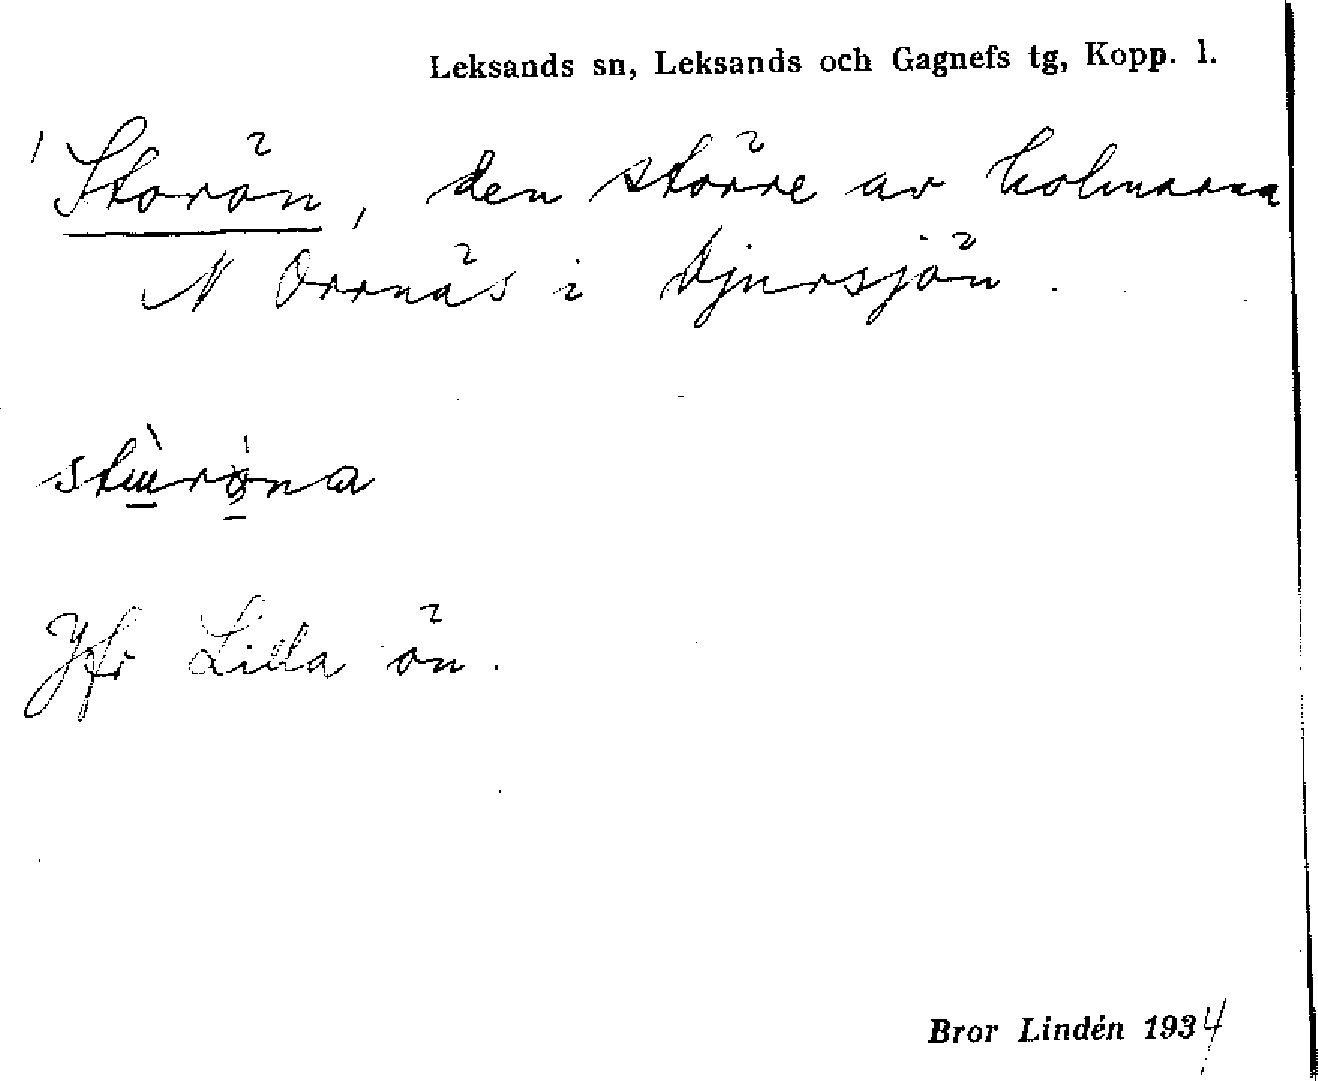 Leksands sn, Leksands och Gagnefs tg, Kopp. l.
Storön, den större av holmarna
N Orrnäs i Djursjön.
Jfr Lilla ön.
Bror Lindén 1934